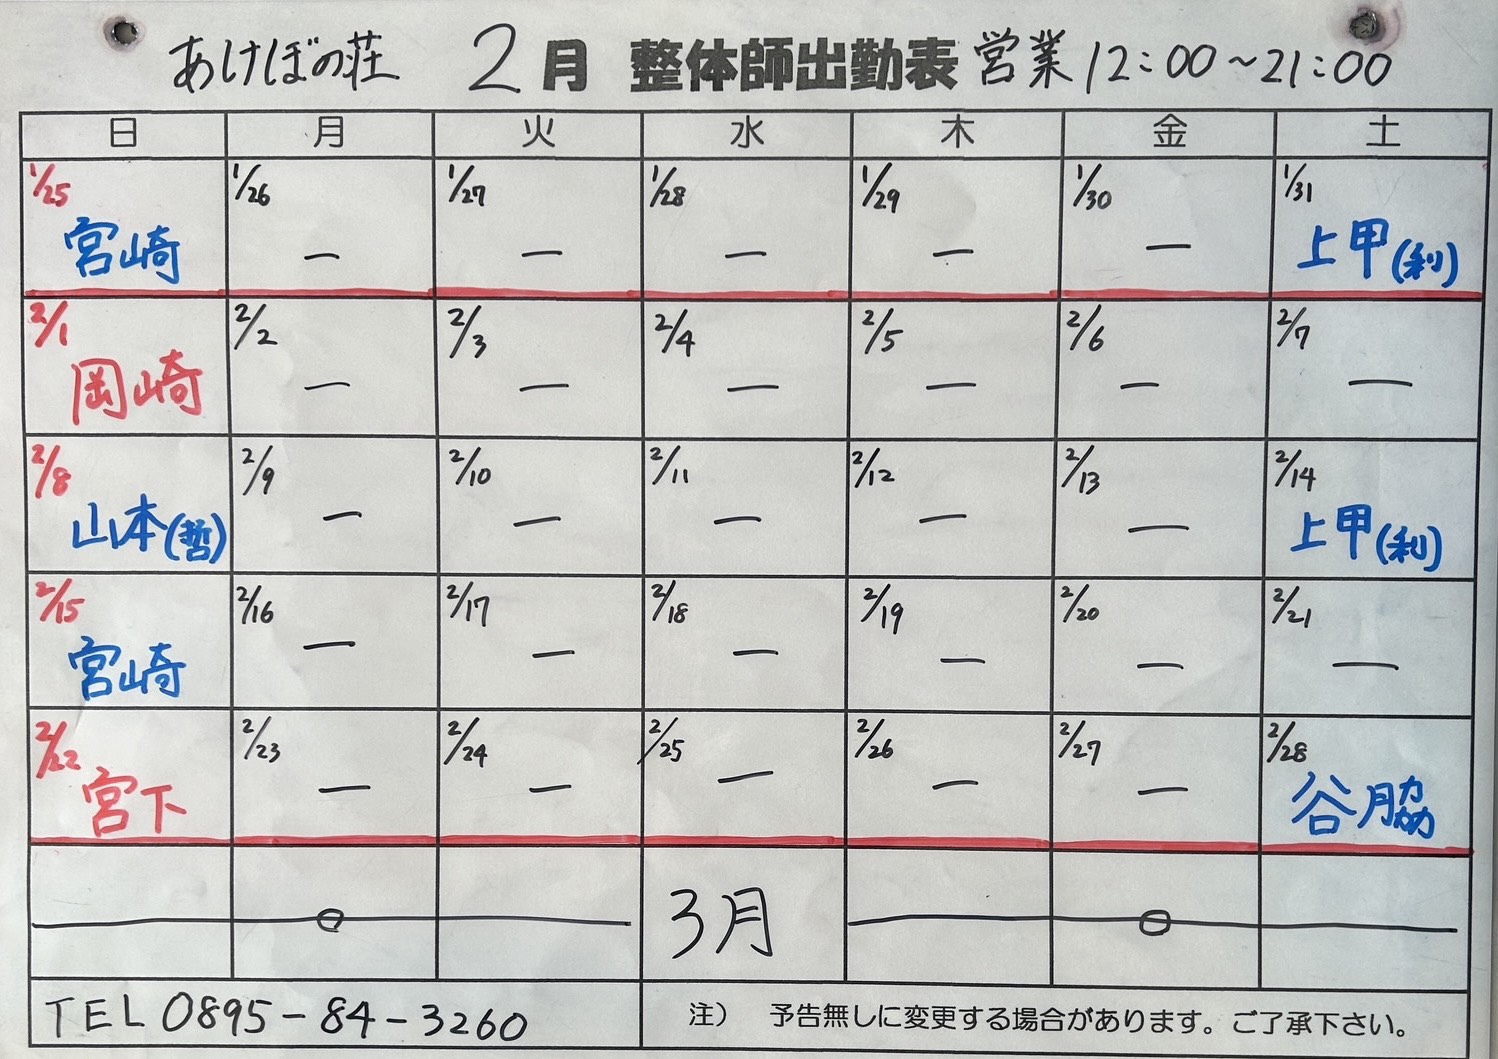 あけぼの荘 2月 整体師出勤表 営業 12:00～21:00
日 月 火 水 木 金 土
1/25 1/26 1/27 1/28 1/29 1/30 1/31
宮崎 ー ー ー ー ー 上甲(利)
2/1 2/2 2/3 2/4 2/5 2/6 2/7
岡崎 ー ー ー ー ー ー
2/8 2/9 2/10 2/11 2/12 2/13 2/14
山本(哲) ー ー ー ー ー 上甲(利)
2/15 2/16 2/17 2/18 2/19 2/20 2/21
宮崎 ー ー ー ー ー ー
2/22 2/23 2/24 2/25 2/26 2/27 2/28
宮下 ー ー ー ー ー 谷脇
3月
TEL 0895-84-3260
注） 予告無しに変更する場合があります。ご了承下さい。